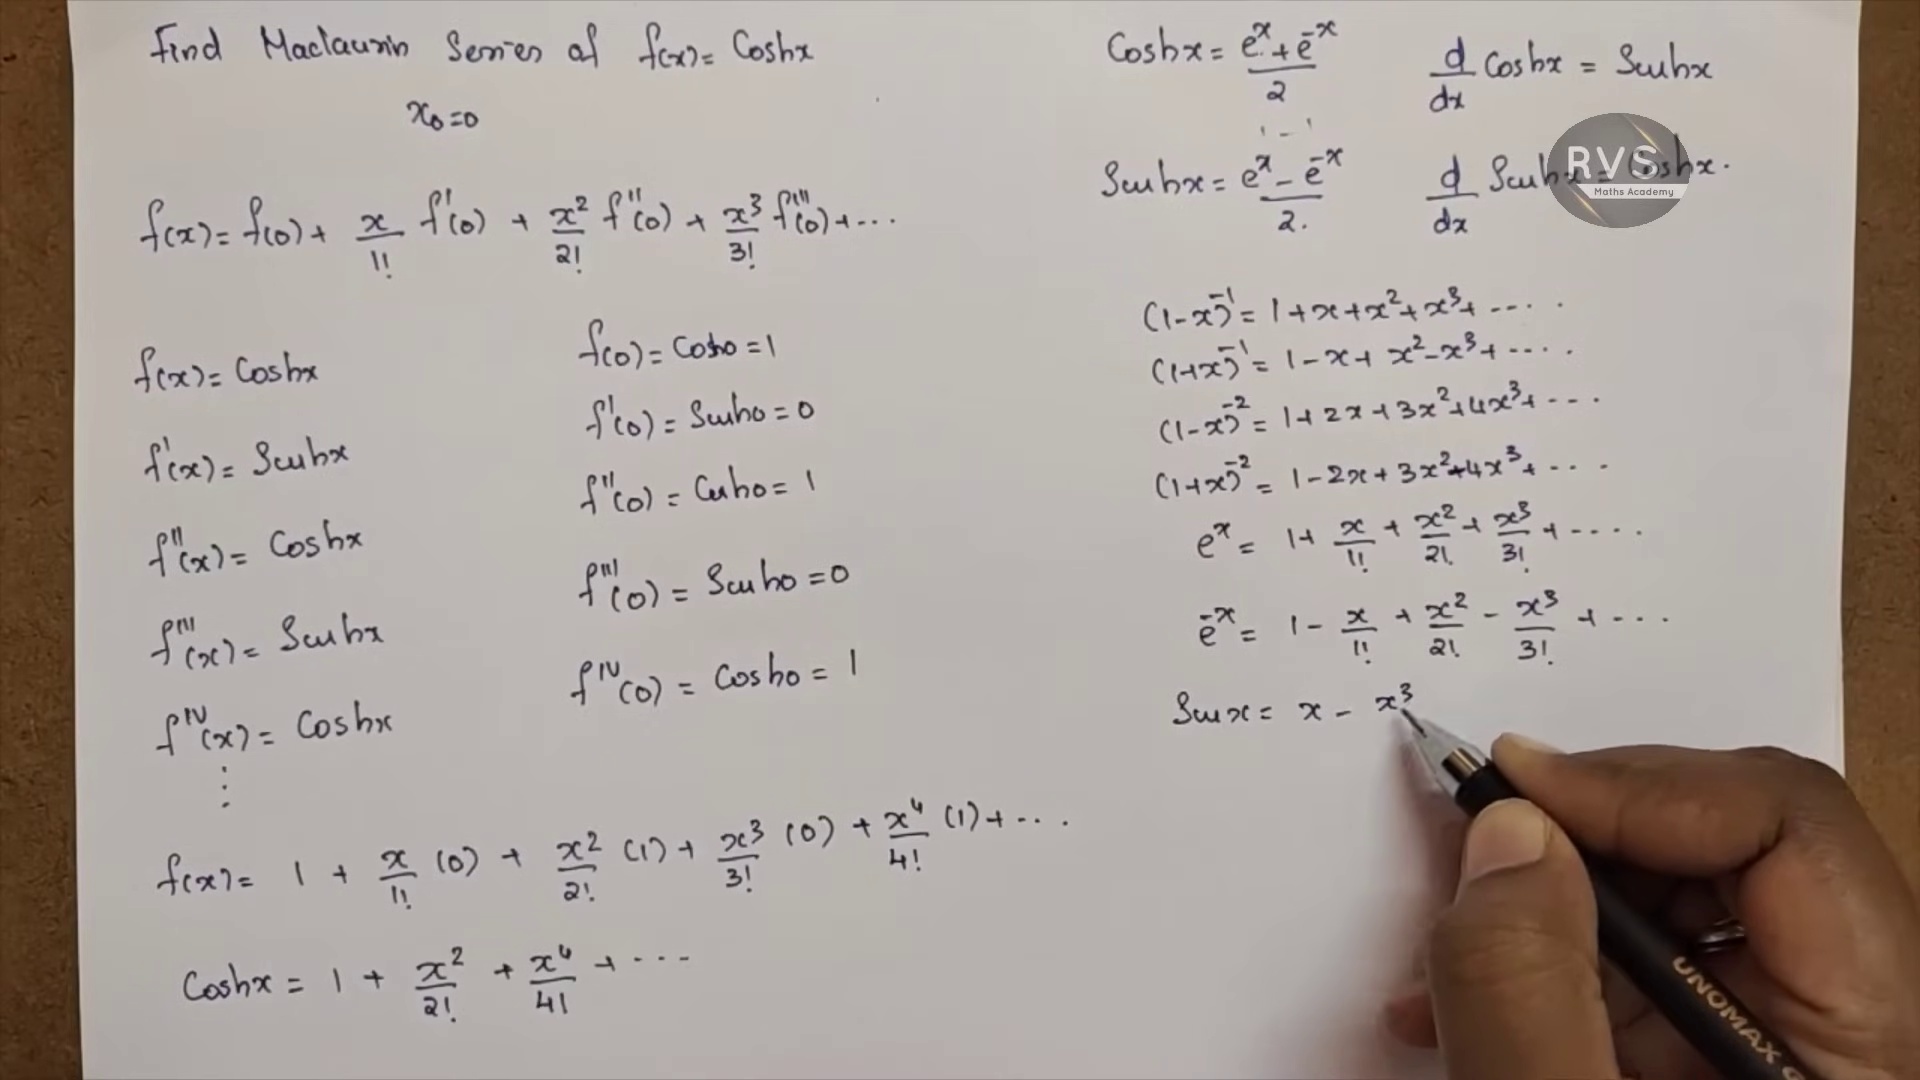 Find Maclaurin Series of f(x) = Coshx
x₀=0
f(x) = f(0) + x/1! f'(0) + x²/2! f''(0) + x³/3! f'''(0) + ...
f(x) = Coshx
f'(x) = Sinhx
f''(x) = Coshx
f'''(x) = Sinhx
f^IV(x) = Coshx
⋮
f(0) = Cosh0 = 1
f'(0) = Sinh0 = 0
f''(0) = Cosh0 = 1
f'''(0) = Sinh0 = 0
f^IV(0) = Cosh0 = 1
f(x) = 1 + x/1! (0) + x²/2! (1) + x³/3! (0) + x⁴/4! (1) + ...
Coshx = 1 + x²/2! + x⁴/4! + ...
Coshx = (e^x + e^-x)/2
d/dx Coshx = Sinhx
Sinhx = (e^x - e^-x)/2.
d/dx Sinhx = Coshx.
RVS
Maths Academy
(1-x)^-1 = 1+x+x²+x³+ ....
(1+x)^-1 = 1-x+x²-x³+ ....
(1-x)^-2 = 1+2x+3x²+4x³+ ...
(1+x)^-2 = 1-2x+3x²-4x³+ ....
e^x = 1+ x/1! + x²/2! + x³/3! + ....
e^-x = 1 - x/1! + x²/2! - x³/3! + ...
Sinx = x - x³
UNOMAX G